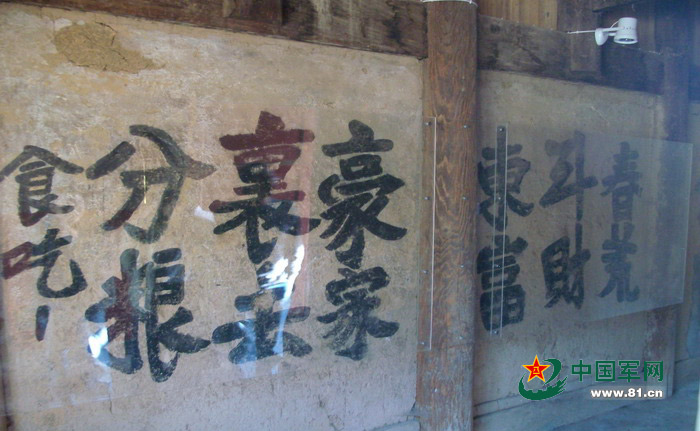 春荒
斗財
東富
豪家
裏去
分粮
食吃!
中国军网
www.81.cn